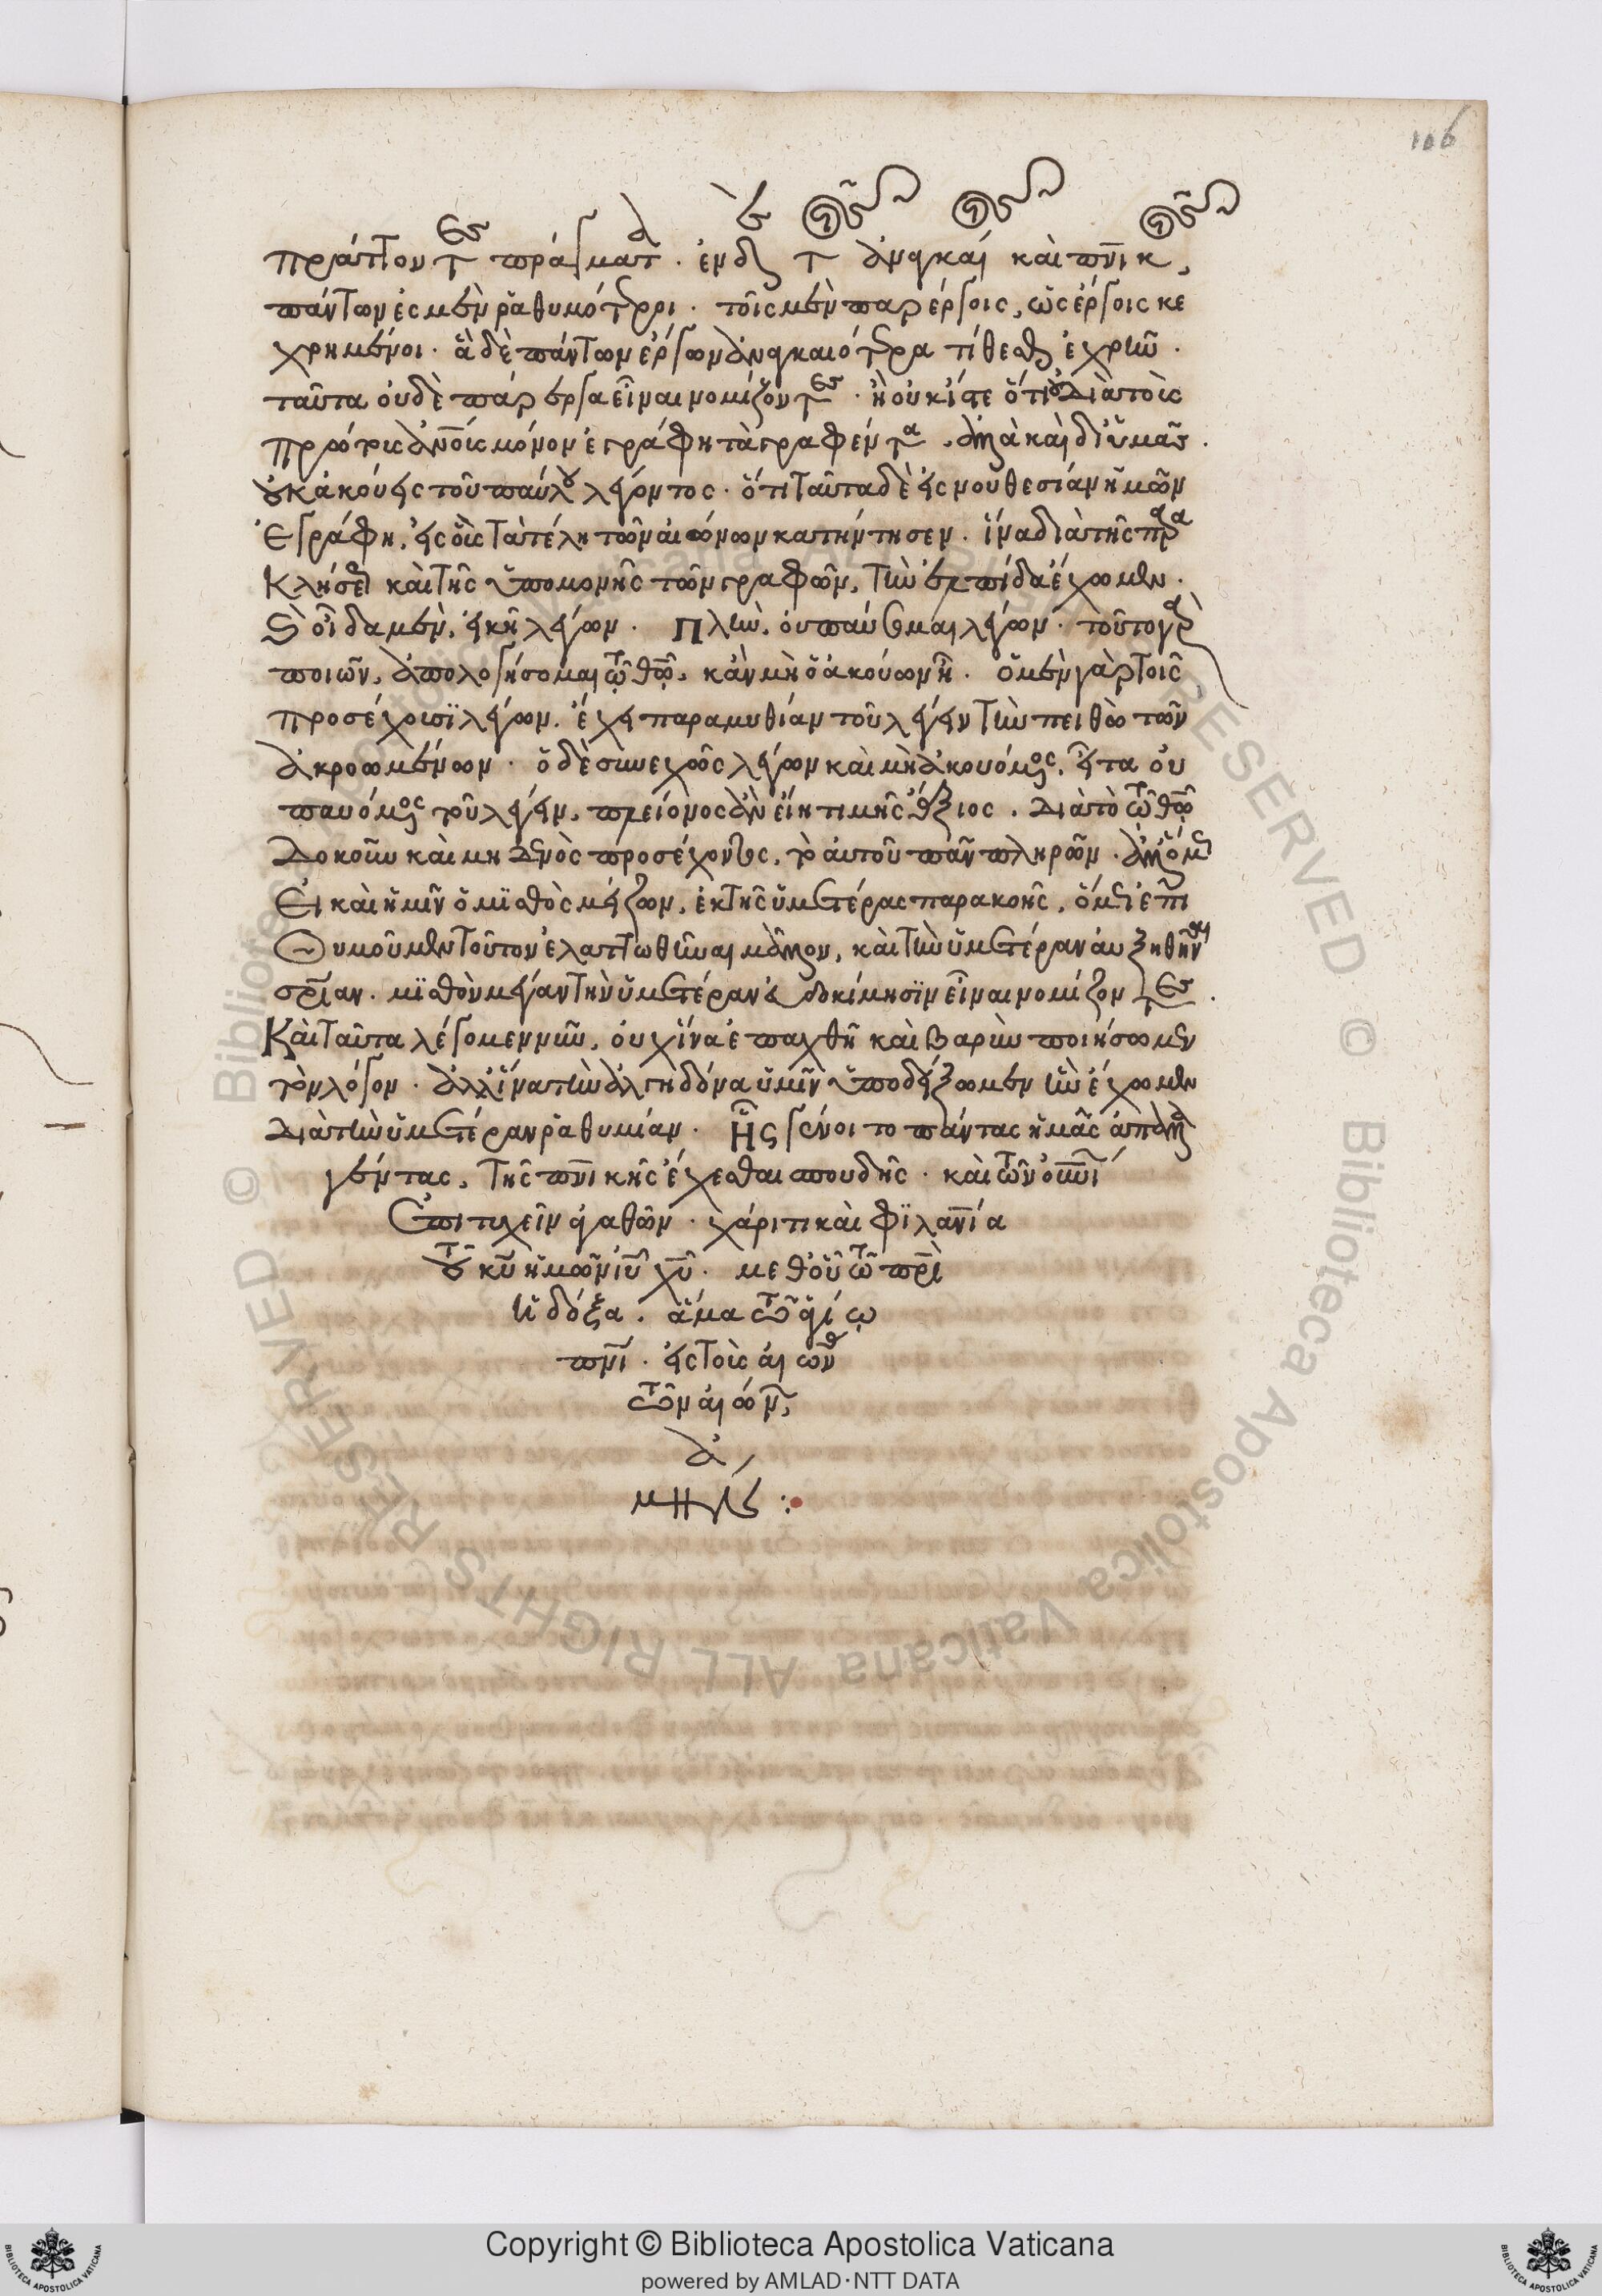 106
πράττοντες πράγματα · ἐν δὲ τοῖς ἀναγκαίοις καὶ πνικοῖς,
πάντων ἐσμὲν ῥαθυμότεροι · τοῖς μὲν παρέργοις, ὡς ἔργοις κε
χρημένοι · ἃ δὲ πάντων ἔργων ἀναγκαιότερα τίθεσθαι ἐχρῆν ·
ταῦτα οὐδὲ πάρεργα εἶναι νομίζοντες · ἢ οὐκ ἴστε ὅτι οὐ διὰ τοὺς
πρώτους ἀνους μόνον ἐγράφη τὰ γραφέντα · ἀλλὰ καὶ δι' ὑμᾶς ·
οὐκ ἀκούεις τοῦ παύλου λέγοντος · ὅτι ταῦτα δὲ εἰς νουθεσίαν ἡμῶν
ἐγράφη, εἰς οὓς τὰ τέλη τῶν αἰώνων κατήντησεν · ἵνα διὰ τῆς παρα
κλήσεως καὶ τῆς ὑπομονῆς τῶν γραφῶν, τὴν ἐλπίδα ἔχωμεν ·
οἶδα μὲν, εἰκῆ λέγων · Πλὴν, οὐ παύσομαι λέγων · τοῦτο γὰρ
ποιῶν, ἀπολογήσομαι τῷ θῷ, κἂν μὴ ὁ ἀκούων ᾖ · ὁ μὲν γὰρ τοῖς
προσέχουσι λέγων · ἔχει παραμυθίαν τοῦ λέγειν τὴν πειθὼ τῶν
ἀκροωμένων · ὁ δὲ συνεχῶς λέγων καὶ μὴ ἀκουόμενος, εἶτα οὐ
παυόμενος τοῦ λέγειν, πλείονος ἂν εἴη τιμῆς ἄξιος · διὰ τὸ τῷ θῷ
δοκοῦν καὶ μηδενὸς προσέχοντος, τὸ αὐτοῦ πᾶν πληρῶν · ἀλλ' ὅμως
Εἰ καὶ ἡμῖν ὁ μισθὸς μείζων, ἐκ τῆς ὑμετέρας παρακοῆς, ὅμως ἐπι
θυμοῦμεν τοῦτον ἐλαττωθῆναι μᾶλλον, καὶ τὴν ὑμετέραν αὐξηθῆναι
σρίαν · μισθὸν μέγαν τὴν ὑμετέραν εὐδοκίμησιν εἶναι νομίζοντες ·
Καὶ ταῦτα λέγομεν νῦν, οὐχ ἵνα ἐπαχθῆ καὶ βαρὺν ποιήσωμεν
τὸν λόγον · ἀλλ' ἵνα τὴν ἀλγηδόνα ὑμῖν ὑποδείξωμεν ἣν ἔχομεν
διὰ τὴν ὑμετέραν ῥαθυμίαν · Ἧς γένοιτο πάντας ἡμᾶς ἀπαλλα
γέντας, τῆς πνικῆς ἔχεσθαι σπουδῆς · καὶ τῶν οὐνί
ἐπιτυχεῖν ἀγαθῶν · χάριτι καὶ φιλανία
τοῦ κυ ἡμῶν ιυ χυ · μεθ' οὗ τῷ πρὶ
ἡ δόξα · ἅμα τῷ ἁγίῳ
πνι · εἰς τοὺς αἰῶνας
τῶν αἰώνων,
ἀ
μήν :·
Copyright © Biblioteca Apostolica Vaticana
powered by AMLAD·NTT DATA